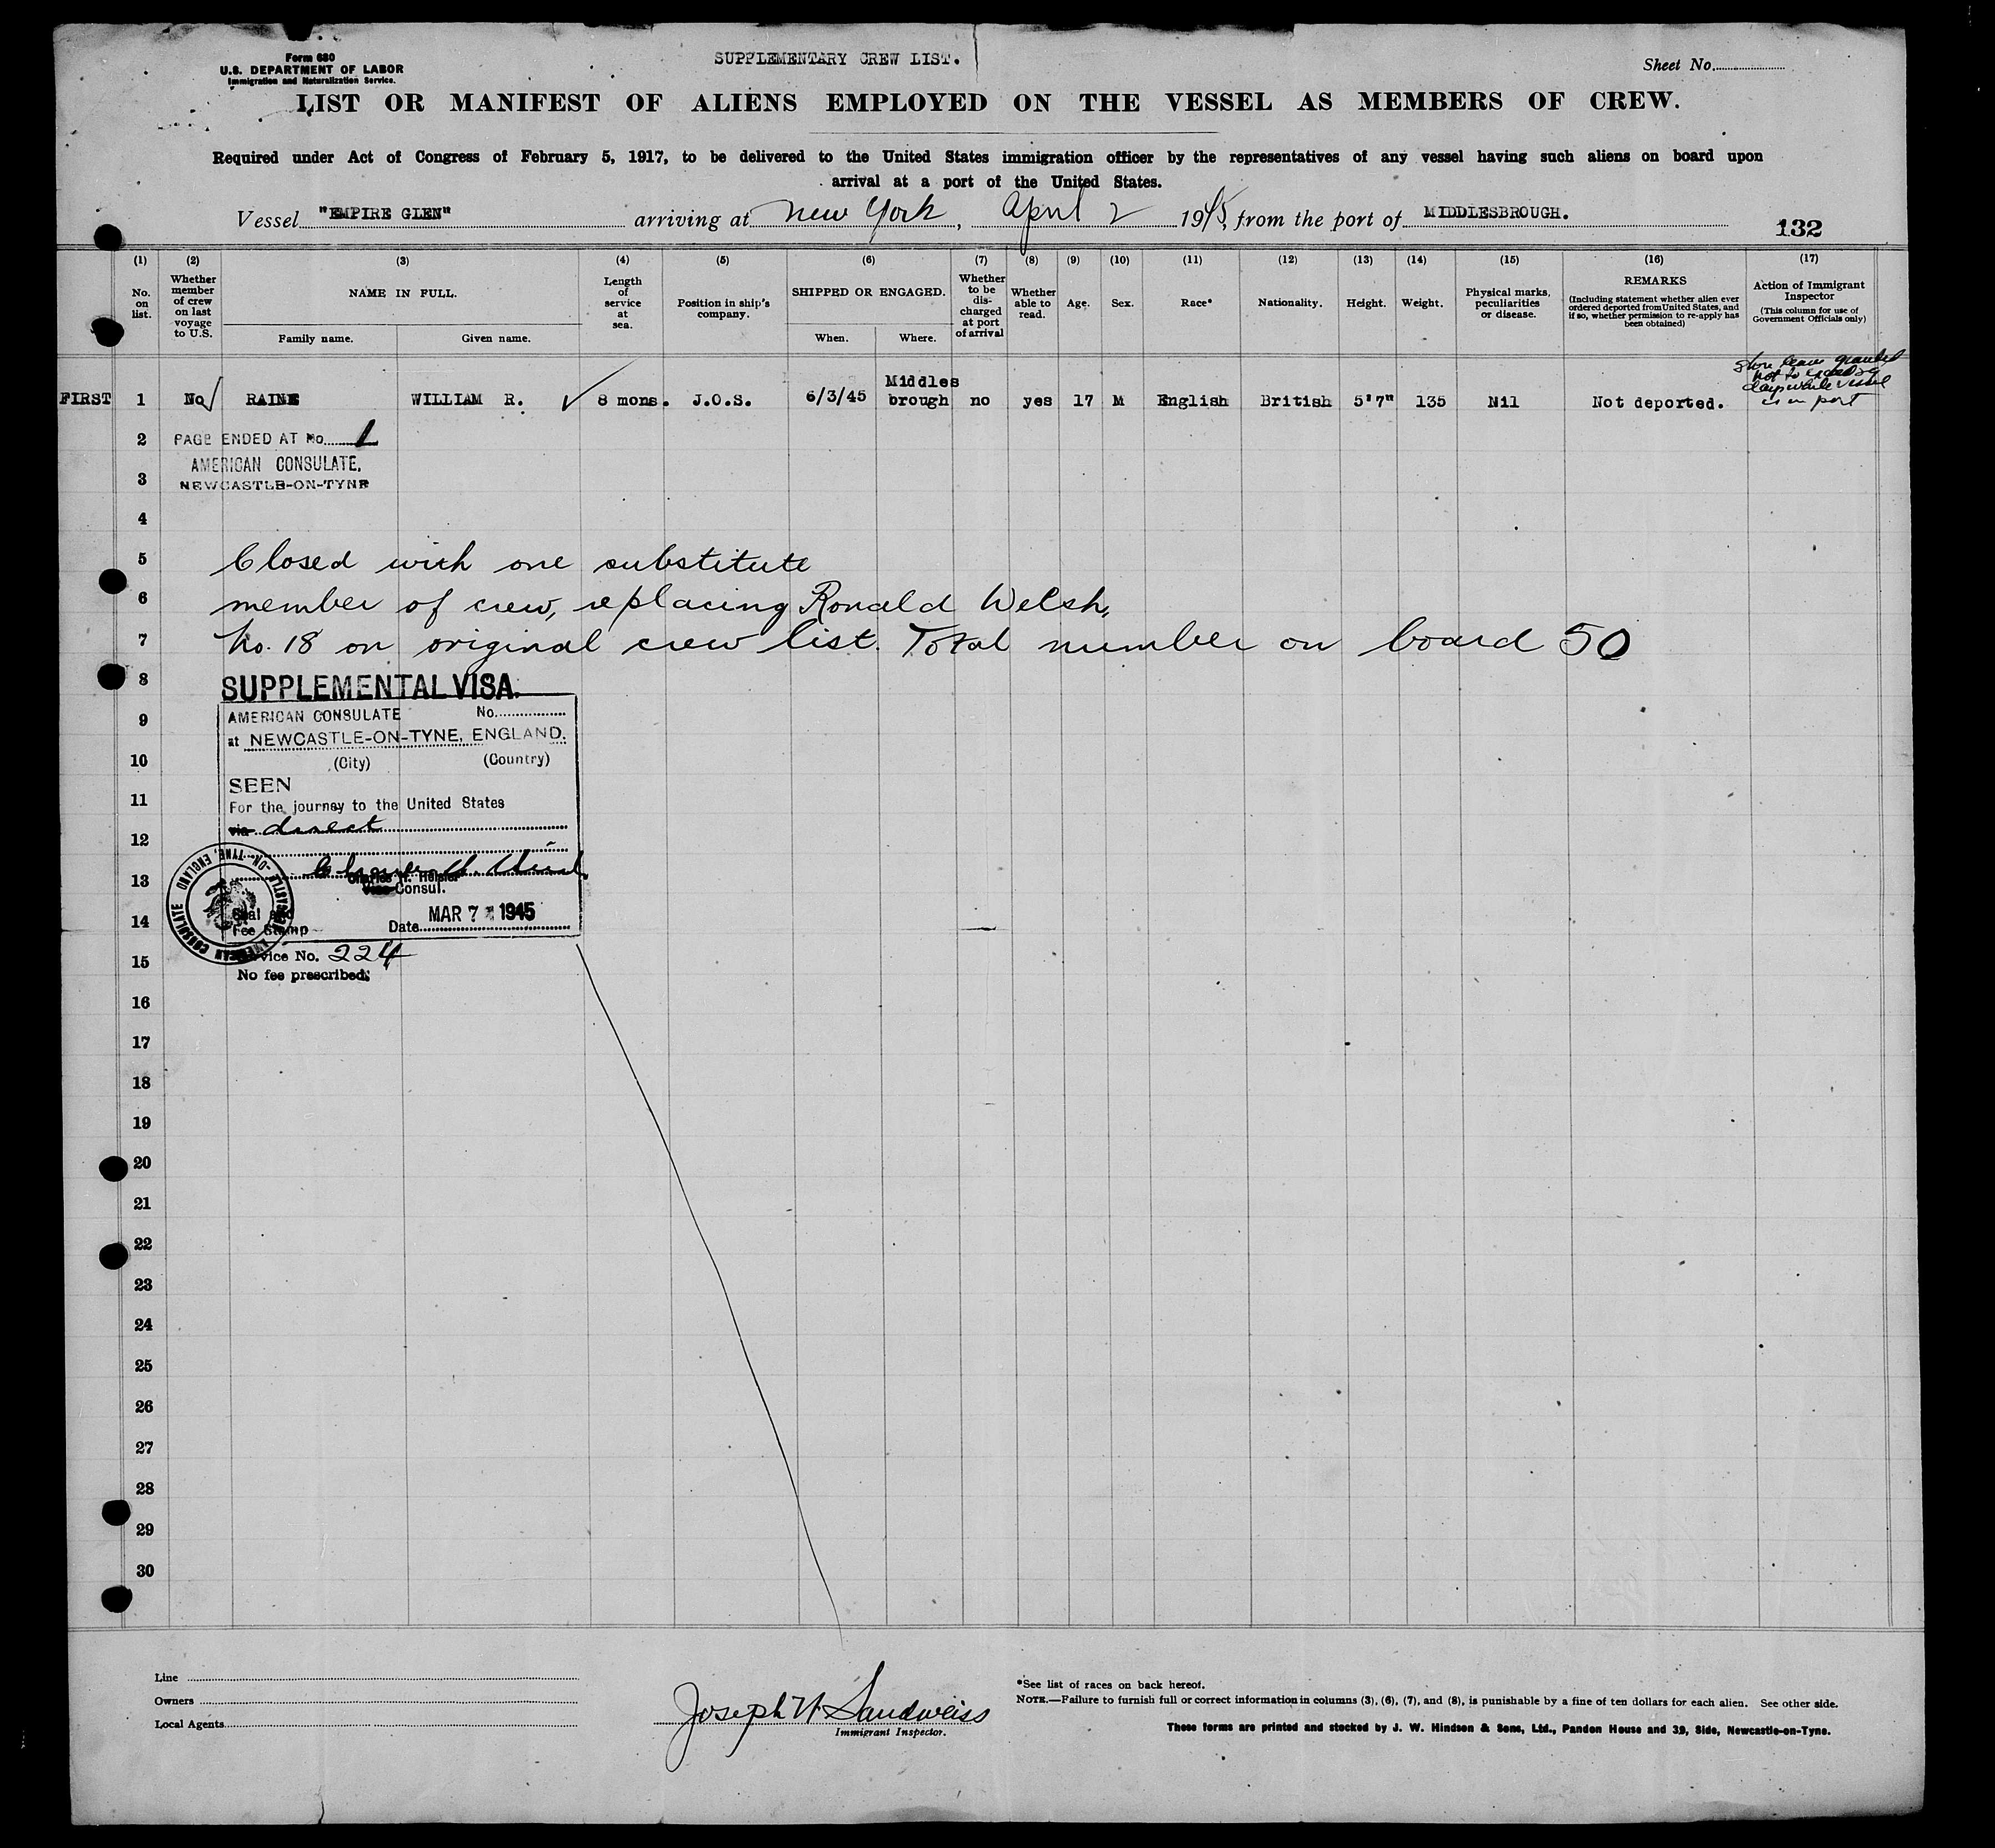 Form 680
U.S. DEPARTMENT OF LABOR
Immigration and Naturalization Service.
SUPPLEMENTARY CREW LIST.
Sheet No.
LIST OR MANIFEST OF ALIENS EMPLOYED ON THE VESSEL AS MEMBERS OF CREW.
Required under Act of Congress of February 5, 1917, to be delivered to the United States immigration officer by the representatives of any vessel having such aliens on board upon
arrival at a port of the United States.
Vessel "EMPIRE GLEN" arriving at New York, April 2 1945, from the port of MIDDLESBROUGH.
132
(1) No. on list.
(2) Whether member of crew on last voyage to U.S.
(3) NAME IN FULL.
Family name. Given name.
(4) Length of service at sea.
(5) Position in ship's company.
(6) SHIPPED OR ENGAGED.
When. Where.
(7) Whether to be discharged at port of arrival
(8) Whether able to read.
(9) Age.
(10) Sex.
(11) Race*
(12) Nationality.
(13) Height.
(14) Weight.
(15) Physical marks, peculiarities or disease.
(16) REMARKS
(Including statement whether alien ever ordered deported from United States, and if so, whether permission to re-apply has been obtained)
(17) Action of Immigrant Inspector
(This column for use of Government Officials only)
FIRST 1 No RAINE WILLIAM R. 8 mons. J.O.S. 6/3/45 Middles brough no yes 17 M English British 5'7" 135 Nil Not deported.
Shore leave granted
not to exceed
days while vessel
is in port
2 PAGE ENDED AT No. 1
AMERICAN CONSULATE,
3 NEWCASTLE-ON-TYNE
4
5 Closed with one substitute
6 member of crew, replacing Ronald Welsh,
7 No. 18 on original crew list. Total number on board 50
8 SUPPLEMENTAL VISA.
9 AMERICAN CONSULATE No.
at NEWCASTLE-ON-TYNE, ENGLAND.
10 (City) (Country)
SEEN
11 For the journey to the United States
12 via direct
13 Charles H. Heisler
Vice Consul.
14 Seal and
Fee Stamp
Date MAR 7 1945
AMERICAN CONSULATE NEWCASTLE-ON-TYNE, ENGLAND
15 Service No. 224
No fee prescribed.
16
17
18
19
20
21
22
23
24
25
26
27
28
29
30
Line
Owners
Local Agents
Joseph H Sandweiss
Immigrant Inspector.
*See list of races on back hereof.
NOTE.—Failure to furnish full or correct information in columns (3), (6), (7), and (8), is punishable by a fine of ten dollars for each alien. See other side.
These forms are printed and stocked by J. W. Hindson & Sons, Ltd., Pandon House and 39, Side, Newcastle-on-Tyne.